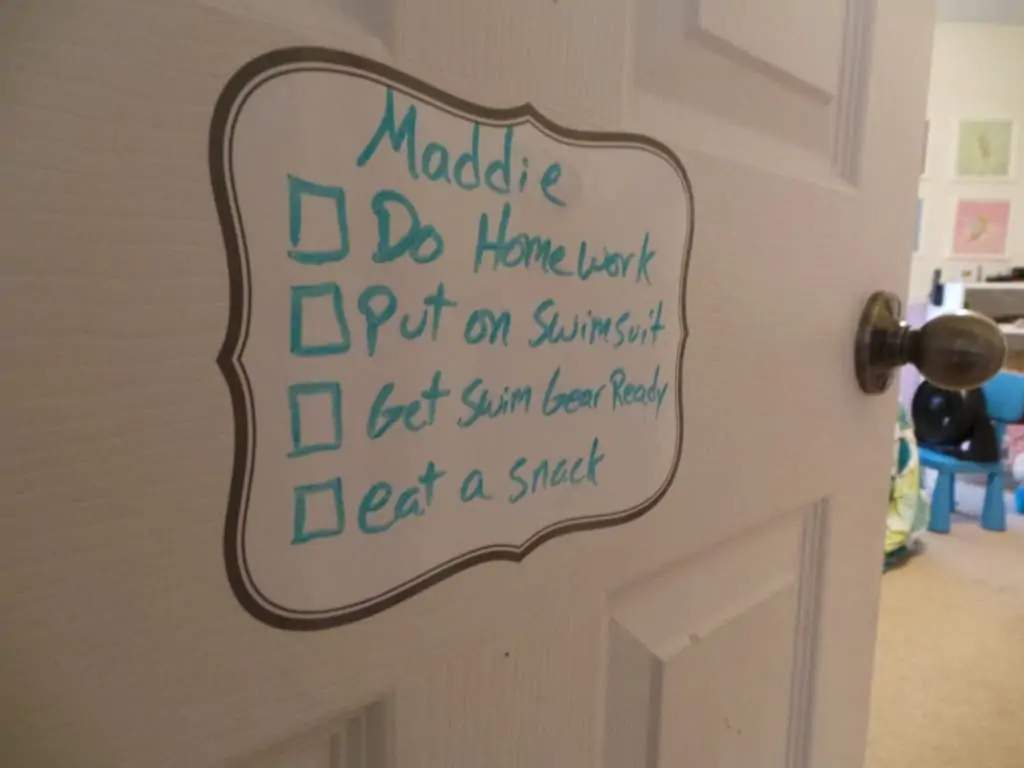 Maddie
Do Homework
Put on Swimsuit
Get Swim Gear Ready
eat a snack